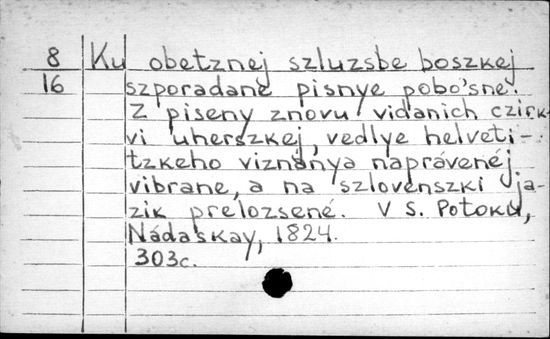 8 Ku obetznej szluzsbe boszkej
16 szporadane pisnye pobo'sne.
Z piseny znovu vidanich czirk-
vi uherszkej, vedlye helveti-
tzkeho viznánya naprávenéj
vibrane, a na szlovenszki ja-
zik prelozsené. V S. Potoku,
Nádaskay, 1824.
303c.